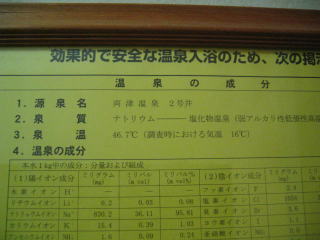 効果的で安全な温泉入浴のため、次の掲
温泉の成分
1. 源泉名 両津温泉 2号井
2. 泉質 ナトリウム――塩化物温泉 (弱アルカリ性低張性高
3. 泉温 46.7℃ (調査時における気温 16℃)
4. 温泉の成分
本水1kg中の成分；分量および組成
(1)陽イオン成分 ミリグラム(mg) ミリバル(m val) ミリバル%(m val%) (2)陰イオン成分 ミリグラム(mg)
水素イオン H⁺ — — — フッ素イオン F
リチウムイオン Li⁺ 0.2 0.03 0.08 塩素イオン Cl
ナトリウムイオン Na⁺ 830.2 36.11 95.81
カリウムイオン K⁺ 15.4 0.39 1.03
アンモニウムイオン NH₄ 1.6 0.09 0.24